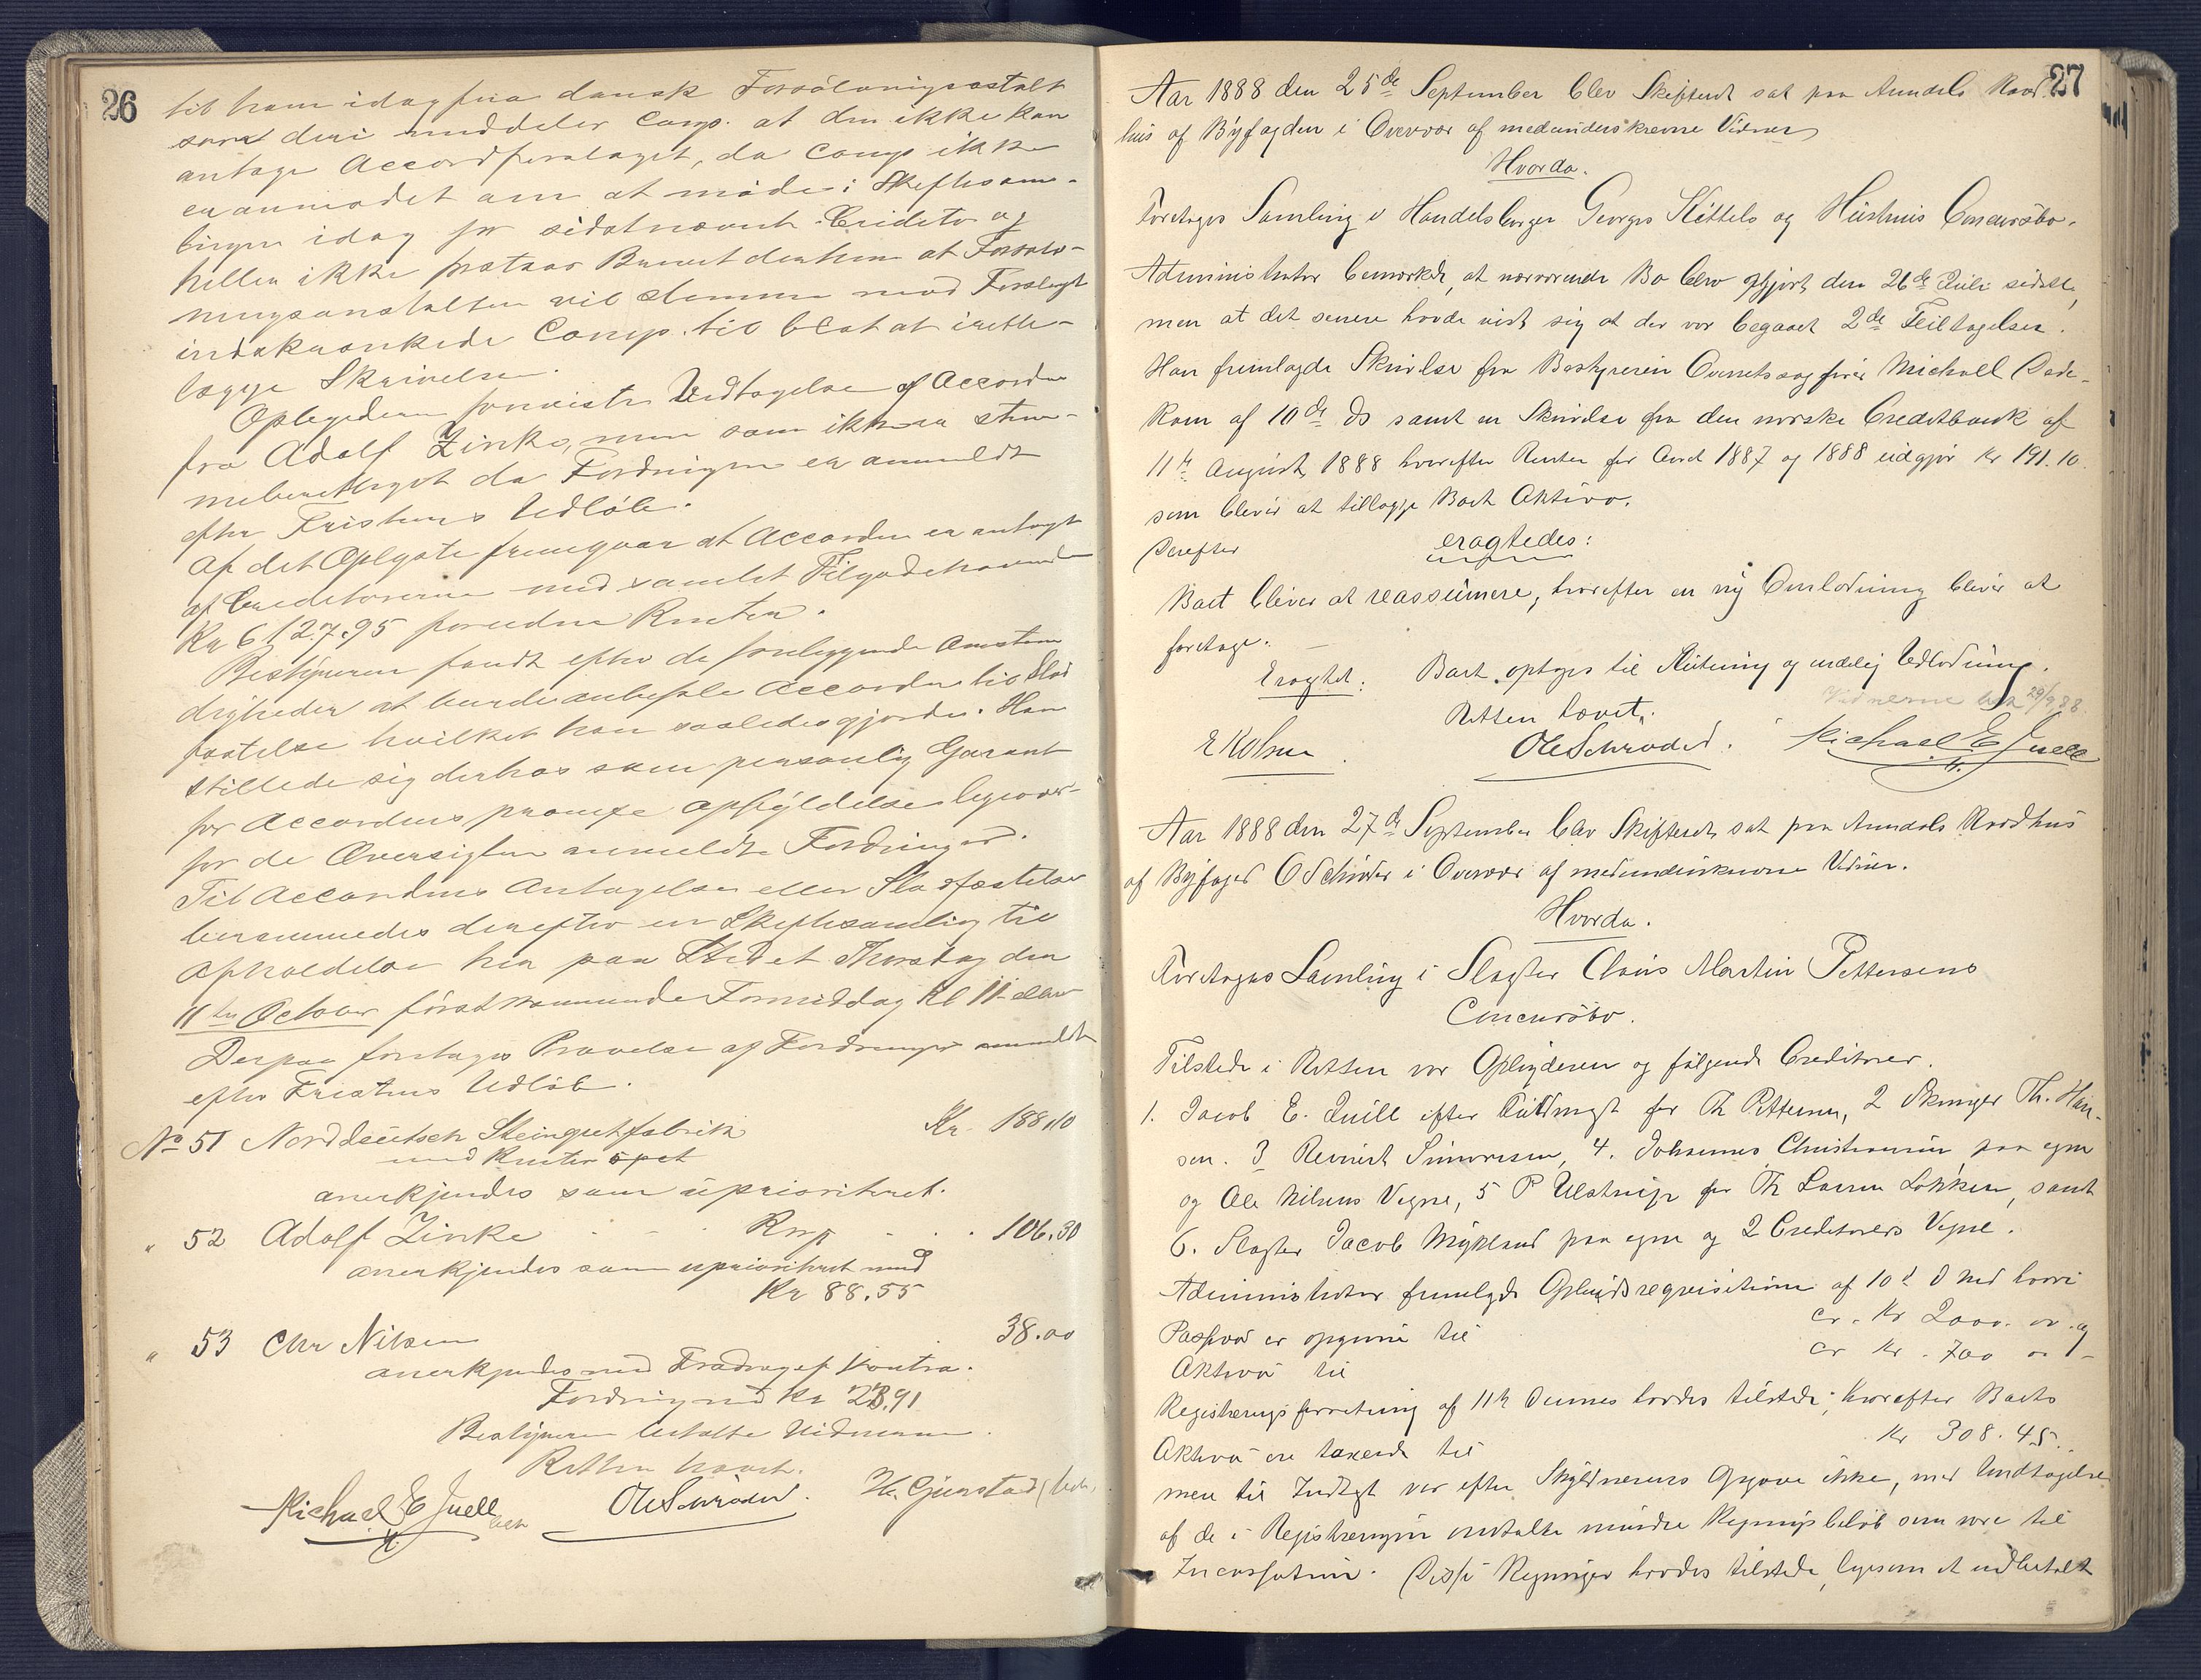 26
til ham idag fra dansk Forsølvningsanstalt
samt deri meddeler Comp. at den ikke kan
antage Accordforslaget, da Comp ikke
er anmodet om at møde i Skiftesam-
lingen idag for sidstnævnte Creditor og
heller ikke fratoges Brevet derhen at Forsølv-
ningsanstalten vil stemme mod Forslaget
indskrænkede Comp. til blot at irette-
lægge Skrivelsen.
Oplyderen foreviste Vedtagelse af Accorden
fra Adolf Zinke, men som ikke er stem-
meberettiget da Fordringen er anmeldt
efter Fristens Udløb.
Af det Oplyste fremgaar at Accorden er antaget
af Creditorerne med samlet Tilgodehavende
Kr 6127.95 foruden Renter.
Bestyreren fandt efter de foreliggende Omstæn
digheder at burde anbefale Accorden til Stad
fæstelse hvilket han saaledes gjorde. Han
stillede sig derhos som personlig Garant
for Accordens prompte Opfyldelse ligeover-
for de Oversigten anmeldte Fordringer.
Til Accordens Antagelse eller Stadfæstelse
berammedes derefter en Skiftesamling til
Afholdelse her paa Stedet Thorsdag den
11te October førstkommende Formiddag Kl 11
Derpaa foretoges Prøvelse af Fordringer anmeldt
efter Fristens Udløb.
No 51 Norddeutsch Steingutfabrik Kr 188.10
med Renter
anerkjendes som uprioriteret.
" 52 Adolf Zinke - - . Rmp - . . 106.30
anerkjendes som uprioriteret med
Kr 88.55
" 53 Chr Nilsen . 38.00
anerkjendes med Fradrag af Kontra-
Fordring med Kr 23.91
Bestyreren betalte Vidnerne.
Retten hævet.
Michael E Juell Ole Schrøder. H. Gjerstad
27
Aar 1888 den 25de September blev Skifteret sat paa Arendals Raad-
hus af Byfogden i Overvær af medunderskrevne Vidner
Hvorda.
Foretoges Samling i Handelsborger Georges Kittels og Hustrus Concursbo.
Administrator bemærkede, at nærværende Bo blev opgjort den 26de Juli sidstl.,
men at det senere havde vist sig at der var begaaet 2de Feiltagelser.
Han fremlagde Skrivelse fra Bestyreren Overretssagfører Michael Pede-
kam af 10de ds samt en Skrivelse fra den norske Creditbank af
11te August 1888 hvorefter Renter for Aaret 1887 og 1888 udgjør Kr 191.10
som bliver at tillægge Boets Aktiva.
Derefter eragtedes:
Boet bliver at reassumere, hvorefter en ny Omlodning bliver at
foretage. -
Eragtet: Boet optages til Slutning og endelig Udlodning.
Vidnerne bet 29/9 88.
Retten hævet.
E Holm. Ole Schrøder. Michael E Juell
Aar 1888 den 27de September blev Skifteret sat paa Arendals Raadhus
af Byfoged O Schrøder i Overvær af medunderskrevne Vidner.
Hvorda.
Foretoges Samling i Slagter Claus Martin Pettersens
Concursbo.
Tilstede i Retten var Oplyderen og følgende Creditorer.
1. Jacob E. Juell efter Fuldmagt for Th Pettersen, 2 Skinger Th. Han-
sen. 3 Reinert Simonsen, 4. Johannes Christensen paa egne
og Ole Nilsens Vegne, 5 P Ulstrup for Th Larsen Løkken, samt
6. Slagter Jacob Mykland paa egne og 2 Creditorers Vegne.
Administrator fremlagde Opbudsrequisitionen af 10d D Md hvori
Passiva er opgivne til cr. Kr 2000. 00. og
Aktiva til cr Kr. 700 00 -
Registreringsforretning af 11te Dennes havdes tilstede; hvorefter Boets
Aktiva ere taxerede til Kr 308.45.
men til Indtægt var efter Skyldnerens Opgave ikke, med Undtagelse
af de i Registreringen omtalte mindre Regningsbeløb som vare til
Incassation. Disse Regninger havdes tilstede, ligesom et udbetalt